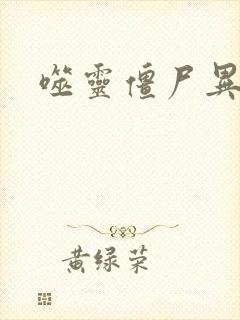 噬靈僵尸異
黄绿荣